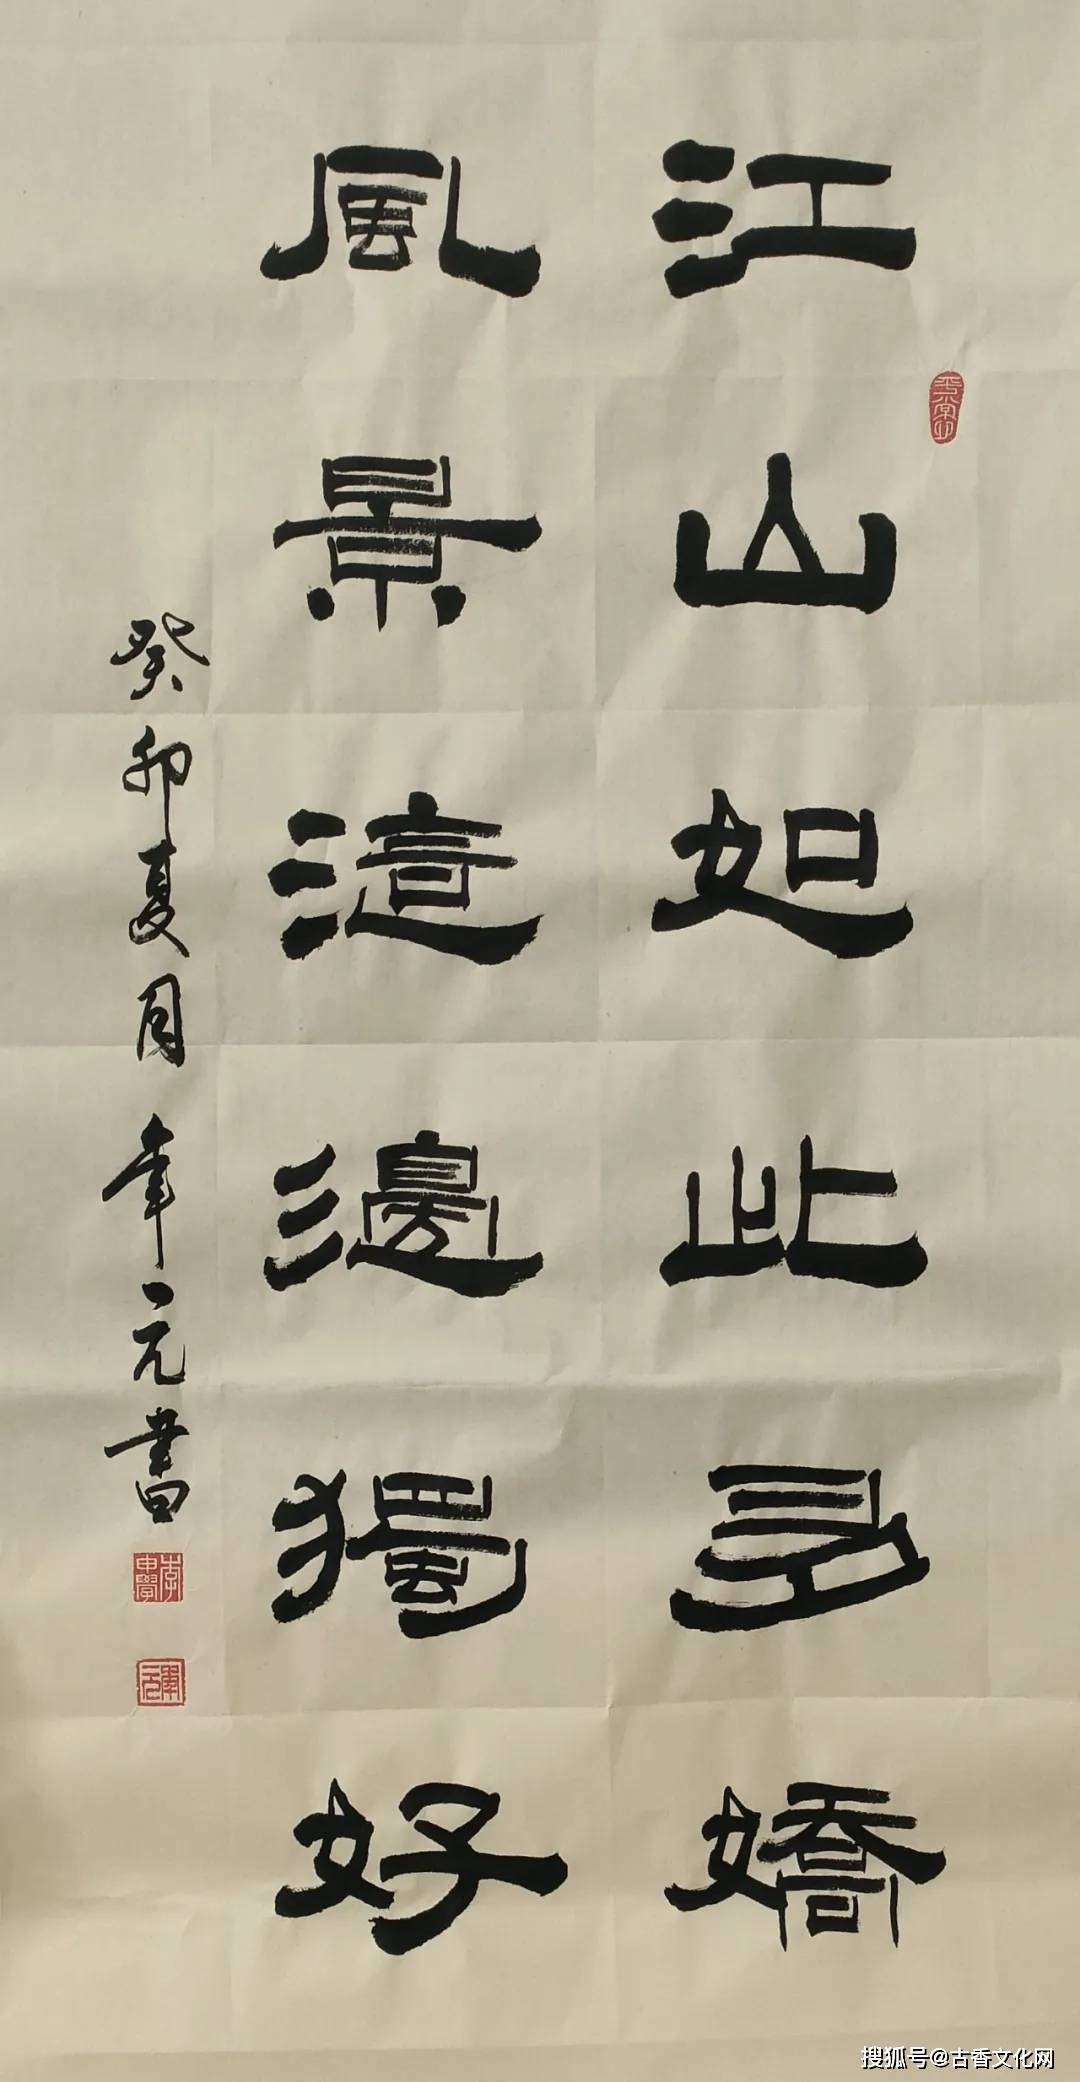 江山如此多嬌
風景這邊獨好
癸卯夏月 聿元書
李申學
聿元
搜狐号@古香文化网